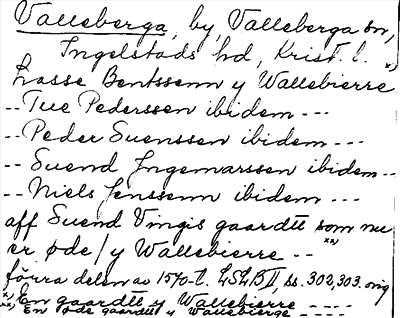 Valleberga, by, Valleberga sn,
Ingelstads hd, Krist. l.
Lasse Bentssenn y Wallebierre x)
-- Tue Pederssen ibidem ---
-- Peder Suenssen ibidem ---
-- Suend Ingemarssen ibidem --
-- Niels Jenssenn ibidem ---
aff Suend Vingis gaardtt som nu
er øde / y Wallebierre -- xx)
förra delen av 1570-t. LSLB II, ss. 302, 303. orig
x) En gaardtt y Wallebierre ----
xx) En øde gaardtt y Wallebierge ----